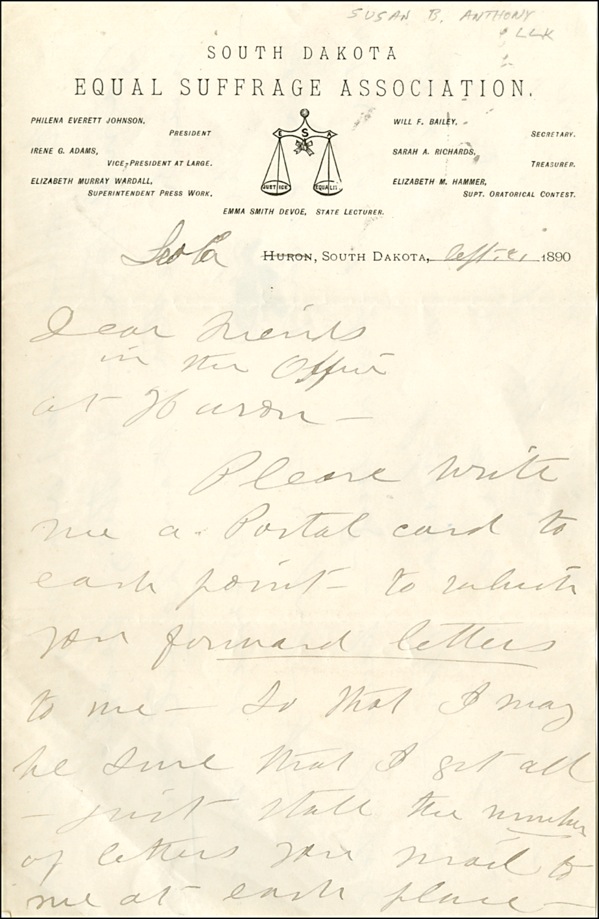 SUSAN B. ANTHONY
LLK
SOUTH DAKOTA
EQUAL SUFFRAGE ASSOCIATION.
PHILENA EVERETT JOHNSON,
PRESIDENT
IRENE G. ADAMS,
VICE-PRESIDENT AT LARGE.
ELIZABETH MURRAY WARDALL,
SUPERINTENDENT PRESS WORK.
E S A
JUSTICE
WILL F. BAILEY,
SECRETARY.
SARAH A. RICHARDS,
TREASURER.
ELIZABETH M. HAMMER,
SUPT. ORATORICAL CONTEST.
EMMA SMITH DEVOE, STATE LECTURER.
HURON, SOUTH DAKOTA, Sept. 1890
Dear Friends
in the Office
at Huron —
Please write
me a Postal card to
each point — to which
you forward letters
to me — So that I may
be sure that I get all
— just state the number
of letters you mail to
me at each place —